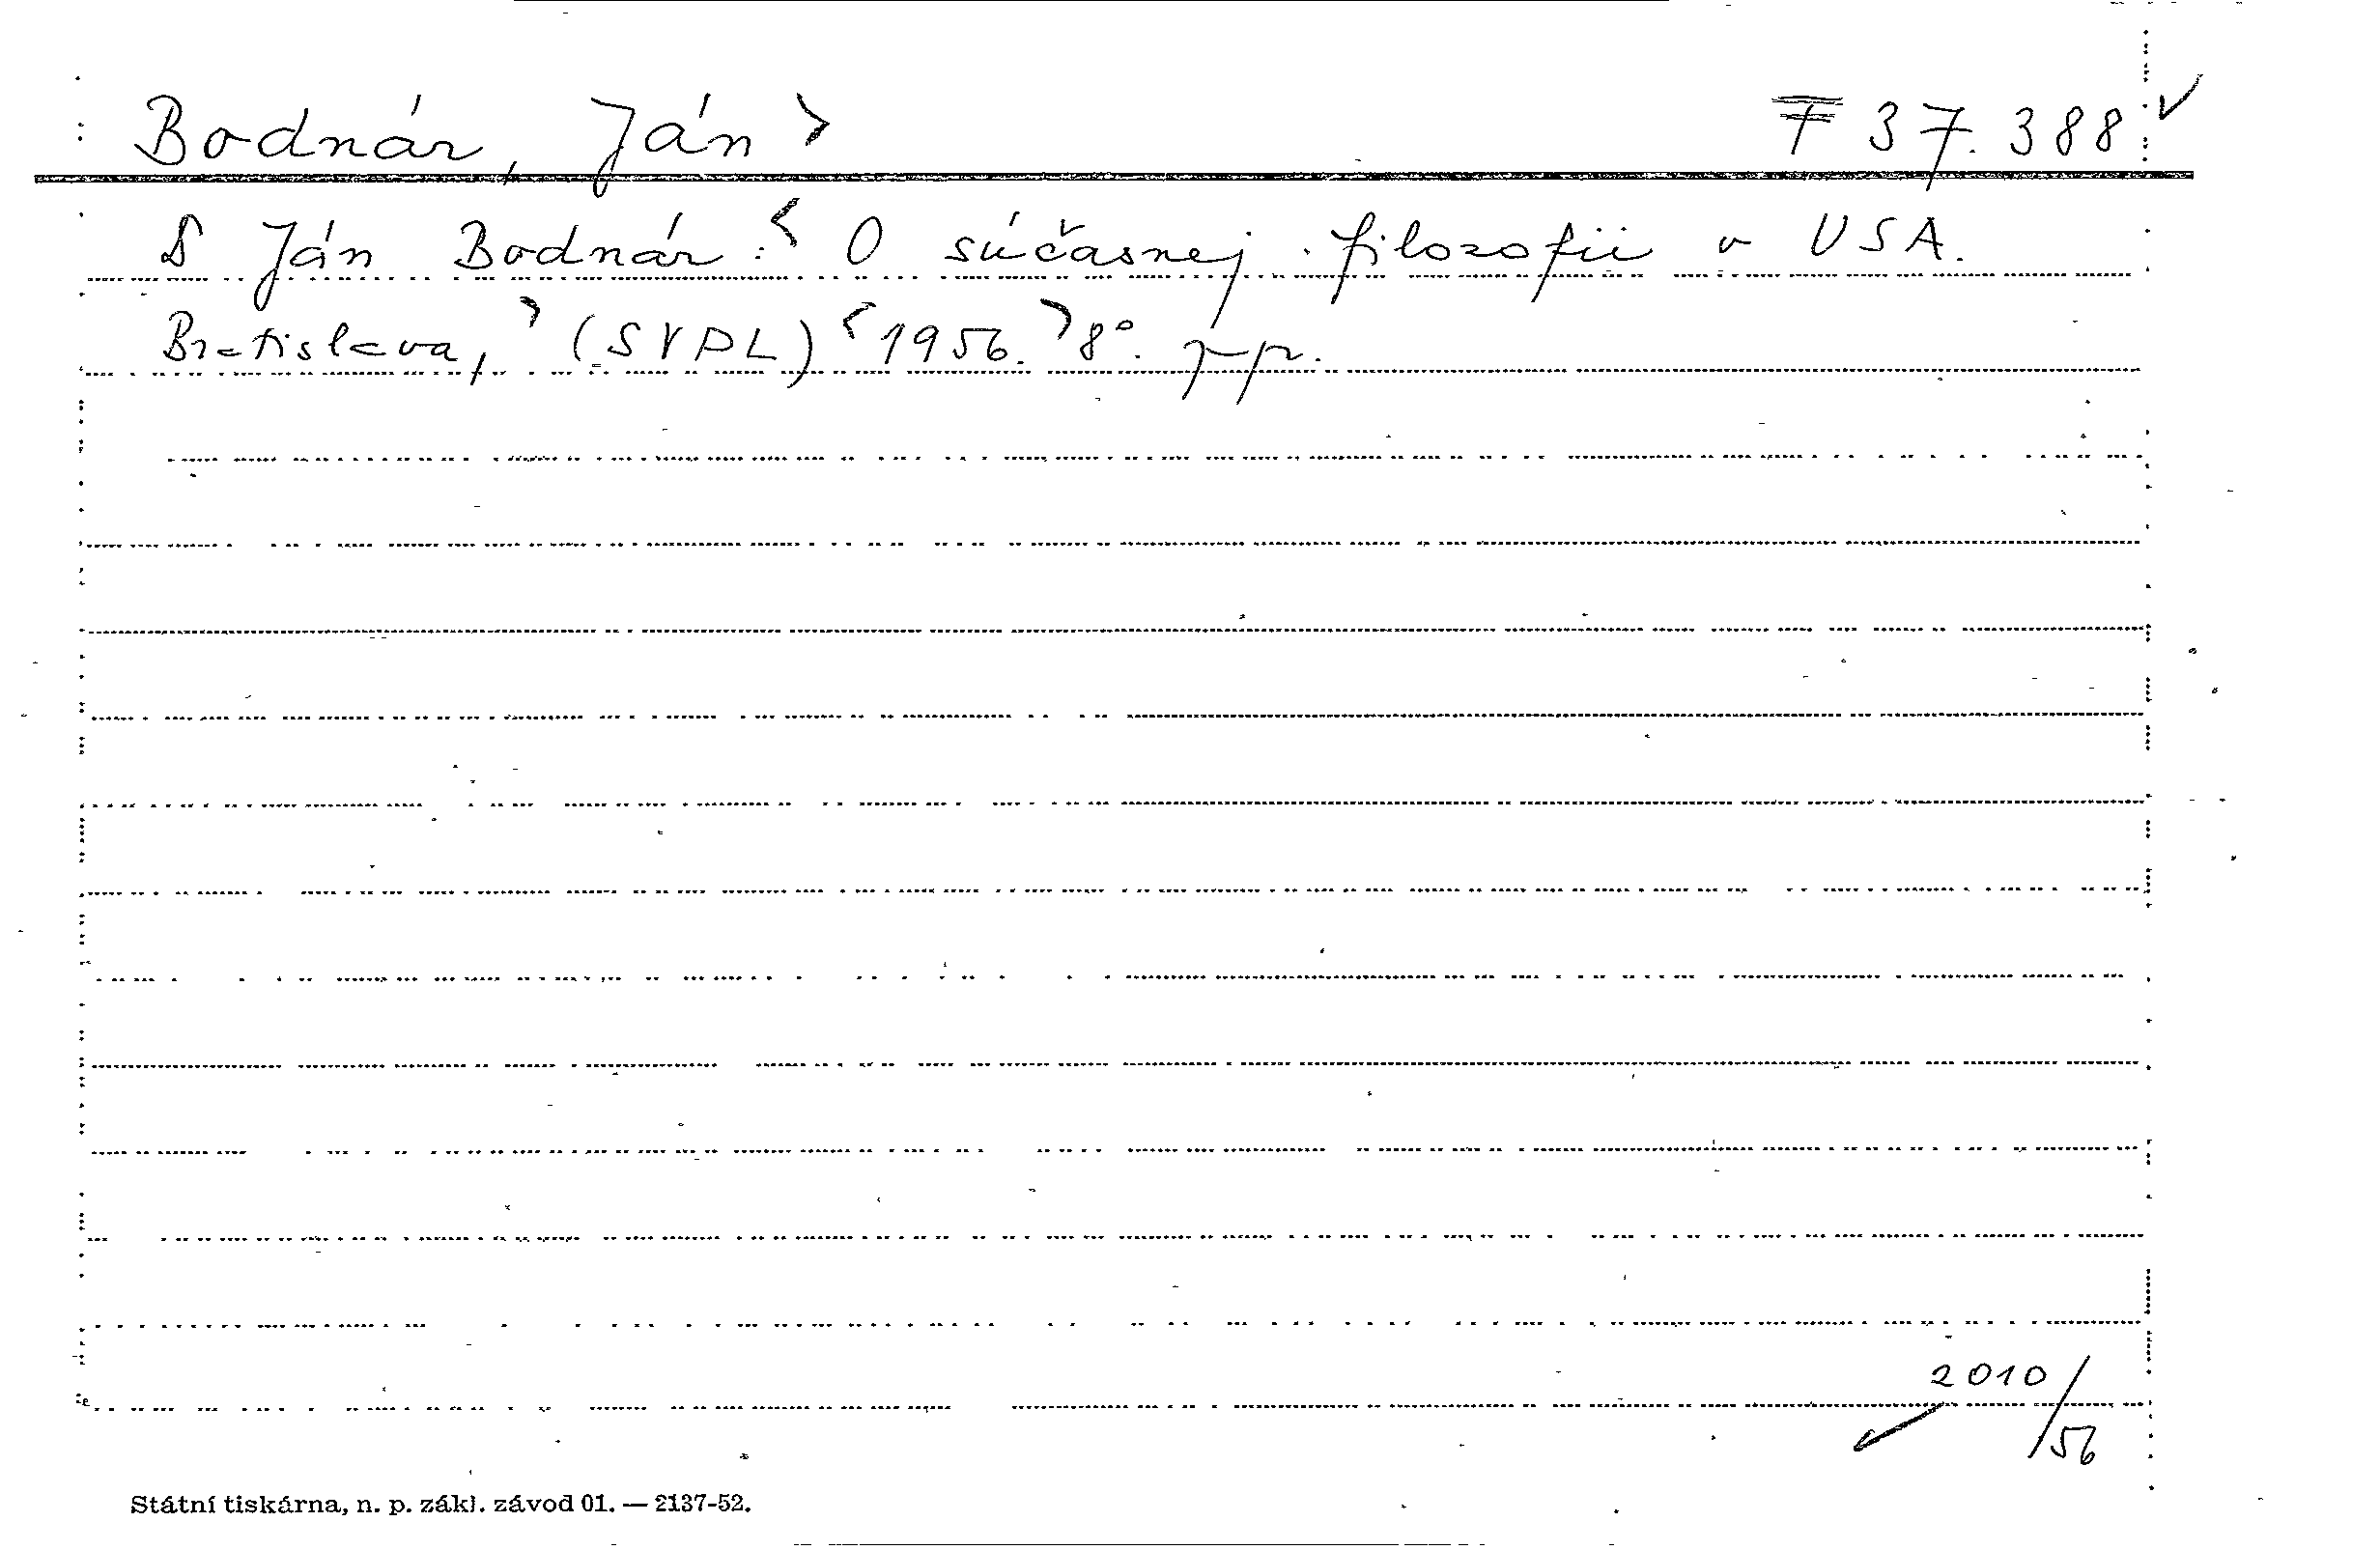 Bodnár, Ján > F 37.388 ✓
Ján Bodnár: < O súčasnej filozofii v USA.
Bratislava, > (SVPL) < 1956. > 8°.
2010/
56
Státní tiskárna, n. p. zákl. závod 01. — 2137-52.